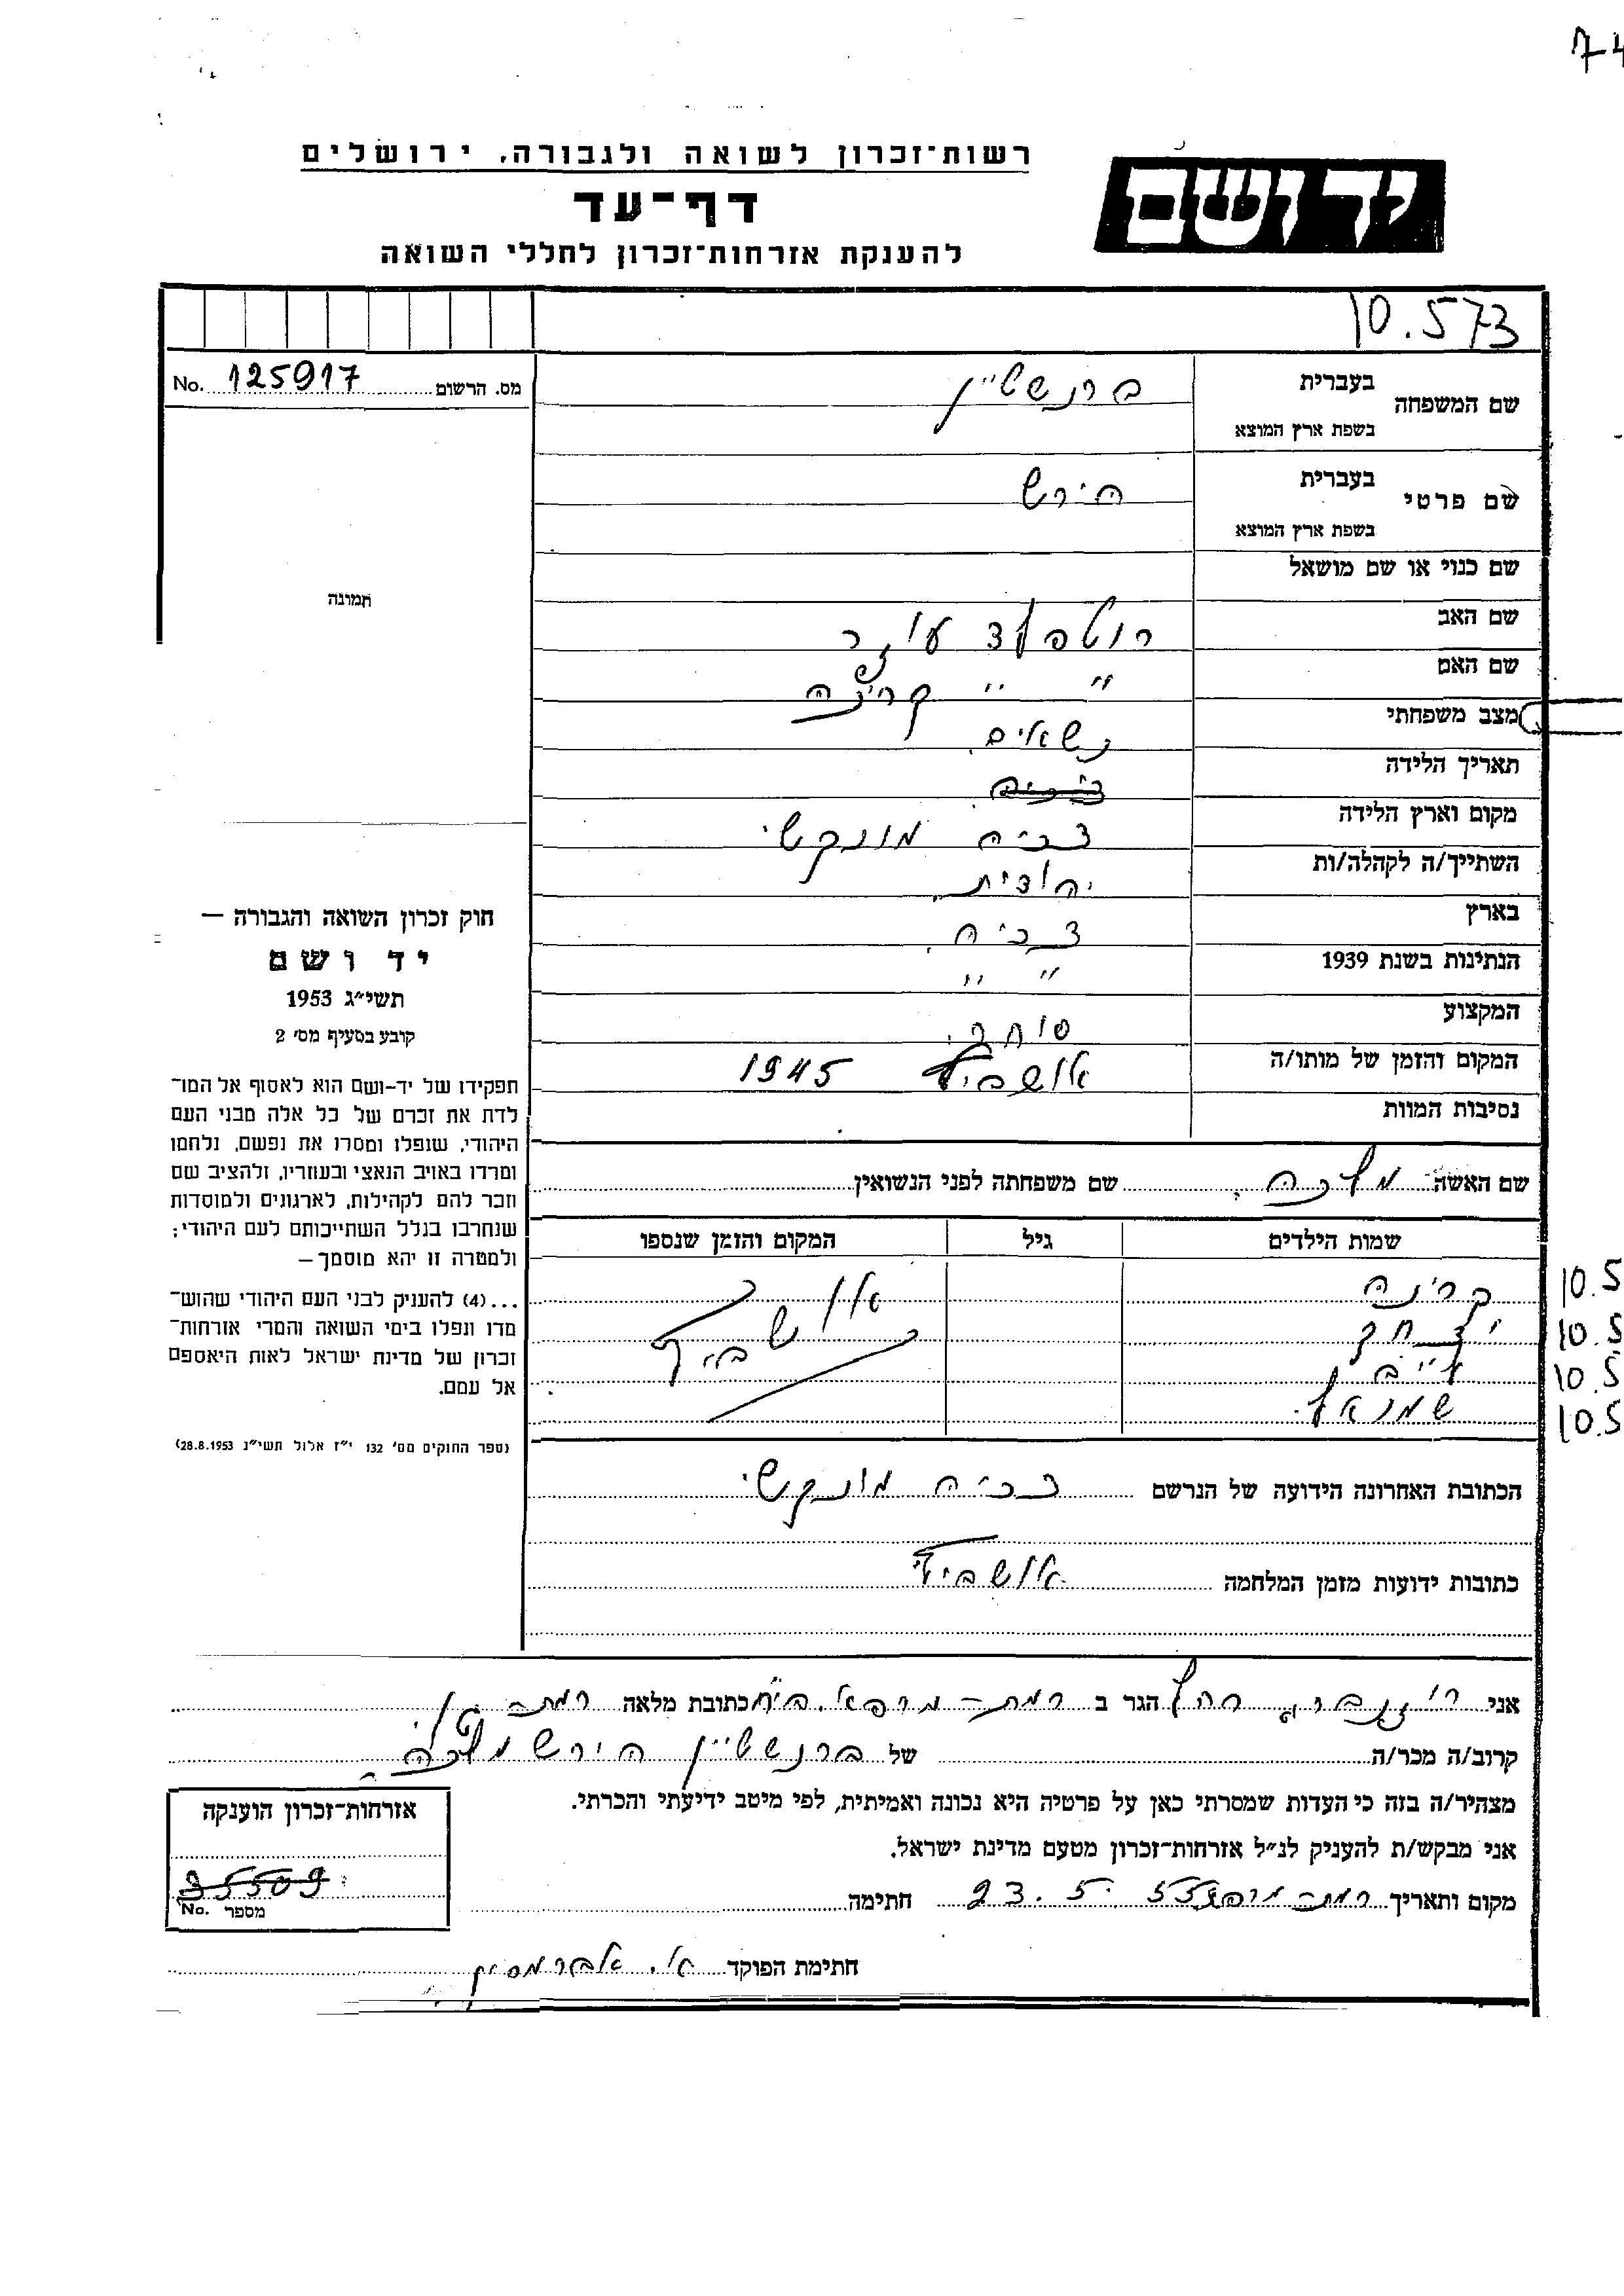 74
רשות־זכרון לשואה ולגבורה, ירושלים
יד ושם
דף־עד
להענקת אזרחות־זכרון לחללי השואה
10.573
מס. הרשום 125917 No.
שם המשפחה בעברית ברנשטיין
בשפת ארץ המוצא
שם פרטי בעברית הירש
בשפת ארץ המוצא
שם כנוי או שם מושאל
שם האב עוזר
שם האם " "
מצב משפחתי נשאים
תאריך הלידה
מקום וארץ הלידה צכיה מונקטש
השתייך/ה לקהלה/ות יהודית
בארץ צכיה
הנתינות בשנת 1939 " "
המקצוע סוחר
המקום והזמן של מותו/ה אושביץ 1945
נסיבות המוות
תמונה
חוק זכרון השואה והגבורה —
יד ושם
תשי״ג 1953
קובע בסעיף מס׳ 2
תפקידו של יד-ושם הוא לאסוף אל המו־
לדת את זכרם של כל אלה מבני העם
היהודי, שנפלו ומסרו את נפשם, נלחמו
ומרדו באויב הנאצי ובעוזריו, ולהציב שם
וזכר להם לקהילות, לארגונים ולמוסדות
שנחרבו בגלל השתייכותם לעם היהודי;
ולמטרה זו יהא מוסמך —
...(4) להעניק לבני העם היהודי שהוש־
מדו ונפלו בימי השואה והמרי אזרחות־
זכרון של מדינת ישראל לאות היאספם
אל עמם.
(ספר החוקים מס׳ 132 י״ז אלול תשי״ג 28.8.1953)
שם האשה מלכה שם משפחתה לפני הנשואין
שמות הילדים גיל המקום והזמן שנספו
קרינה אושביץ 10.5
יצחק 10.5
לייב 10.5
שמואל 10.5
הכתובת האחרונה הידועה של הנרשם צכיה מונקטש
כתובות ידועות מזמן המלחמה אושביץ
אני רוזנברג רחל הגר ב רמת-מרפא כתובת מלאה רמת
קרוב/ה מכר/ה של ברנשטיין הירש מלכה
מצהיר/ה בזה כי העדות שמסרתי כאן על פרטיה היא נכונה ואמיתית, לפי מיטב ידיעתי והכרתי.
אני מבקש/ת להעניק לנ״ל אזרחות־זכרון מטעם מדינת ישראל.
מקום ותאריך רמת- 23.5 חתימה
חתימת הפוקד א. אברמסון
אזרחות־זכרון הוענקה
35509
מספר No.